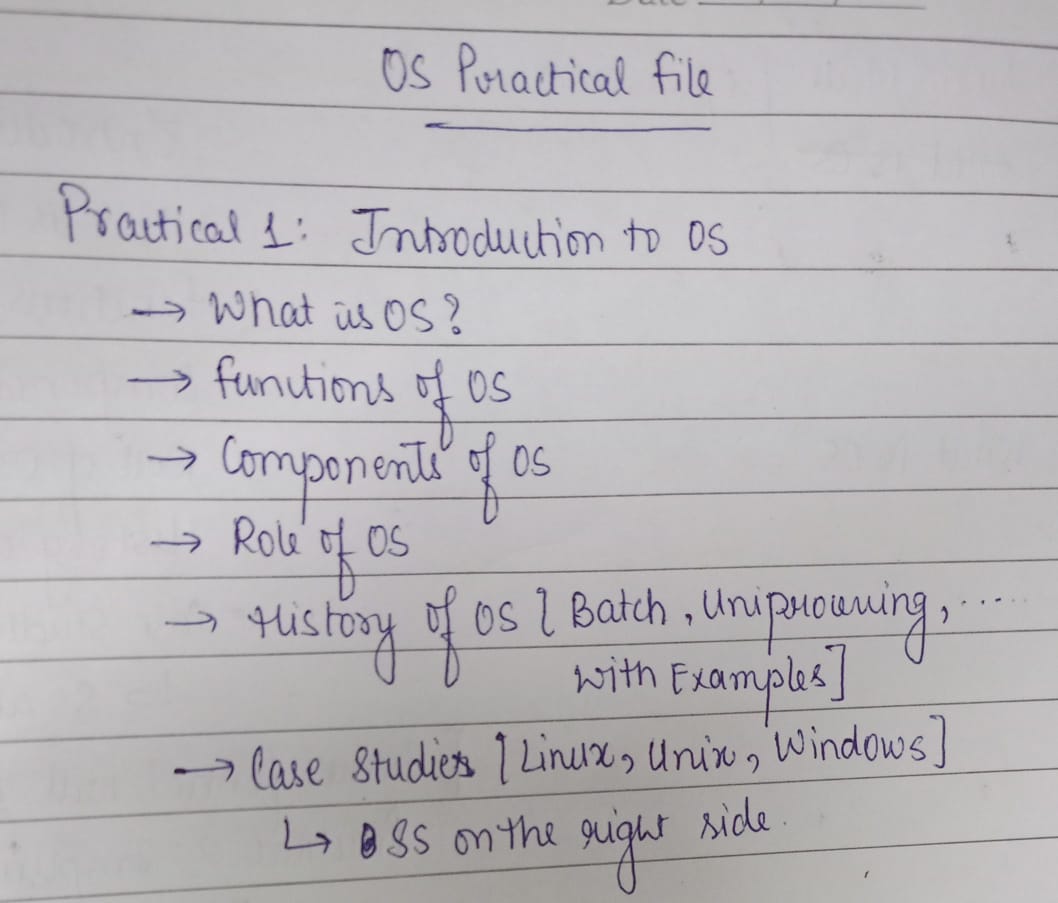 Date
OS Practical file
Practical 1: Introduction to OS
→ What is OS?
→ functions of OS
→ Components of OS
→ Role of OS
→ History of OS [ Batch, Uniprocessing, ....
with Examples]
→ Case Studies [Linux, Unix, Windows]
↳ SS on the right side.